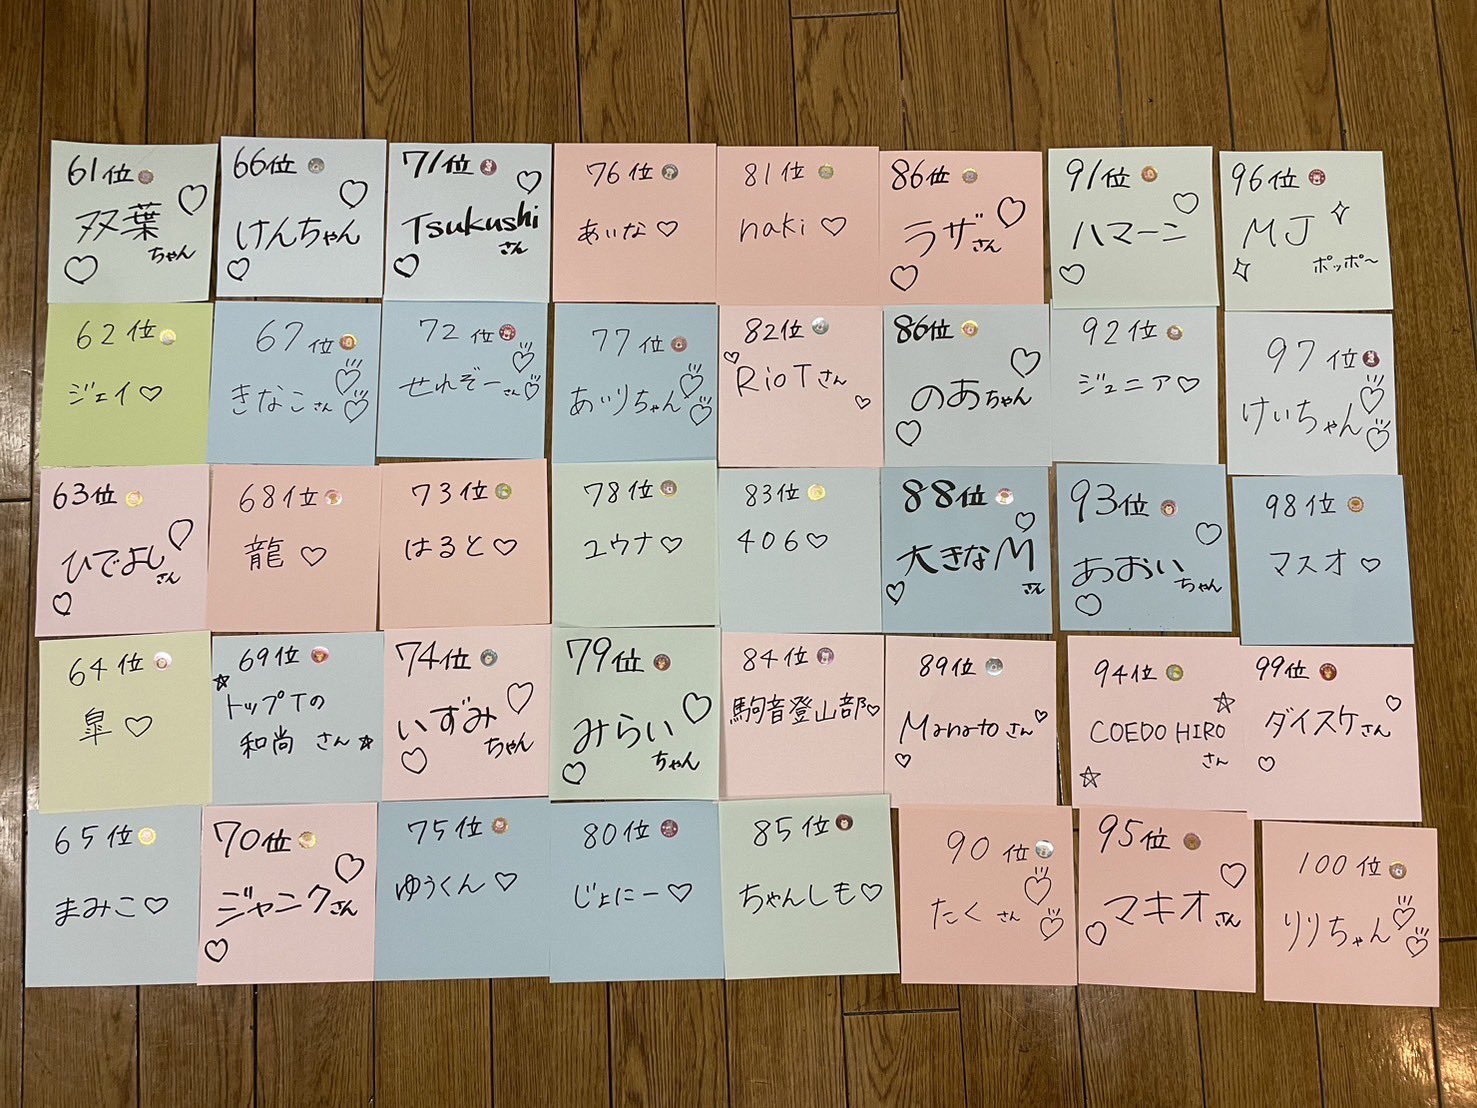 61位
双葉
ちゃん
62位
ジェイ♡
63位
ひでよし
さん
64位
皐♡
65位
まみこ♡
66位
けんちゃん
67位
きなこさん
68位
龍♡
69位
トップTの
和尚 さん☆
70位
ジャンクさん
71位
Tsukushi
さん
72位
せれぞーさん
73位
はると♡
74位
いずみ
ちゃん
75位
ゆうくん♡
76位
あいな♡
77位
あいりちゃん
78位
ユウナ♡
79位
みらい
ちゃん
80位
じょにー♡
81位
naki♡
82位
RioTさん
83位
406♡
84位
駒音登山部♡
85位
ちゃんしも♡
86位
ラザさん
86位
のあちゃん
88位
大きなM
さん
89位
Manatoさん
90位
たくさん
91位
ハマーン
92位
ジュニア♡
93位
あおい
ちゃん
94位
COEDO HIRO
さん
95位
マキオさん
96位
MJ
ポッポ～
97位
けいちゃん
98位
マスオ♡
99位
ダイスケさん
100位
りりちゃん